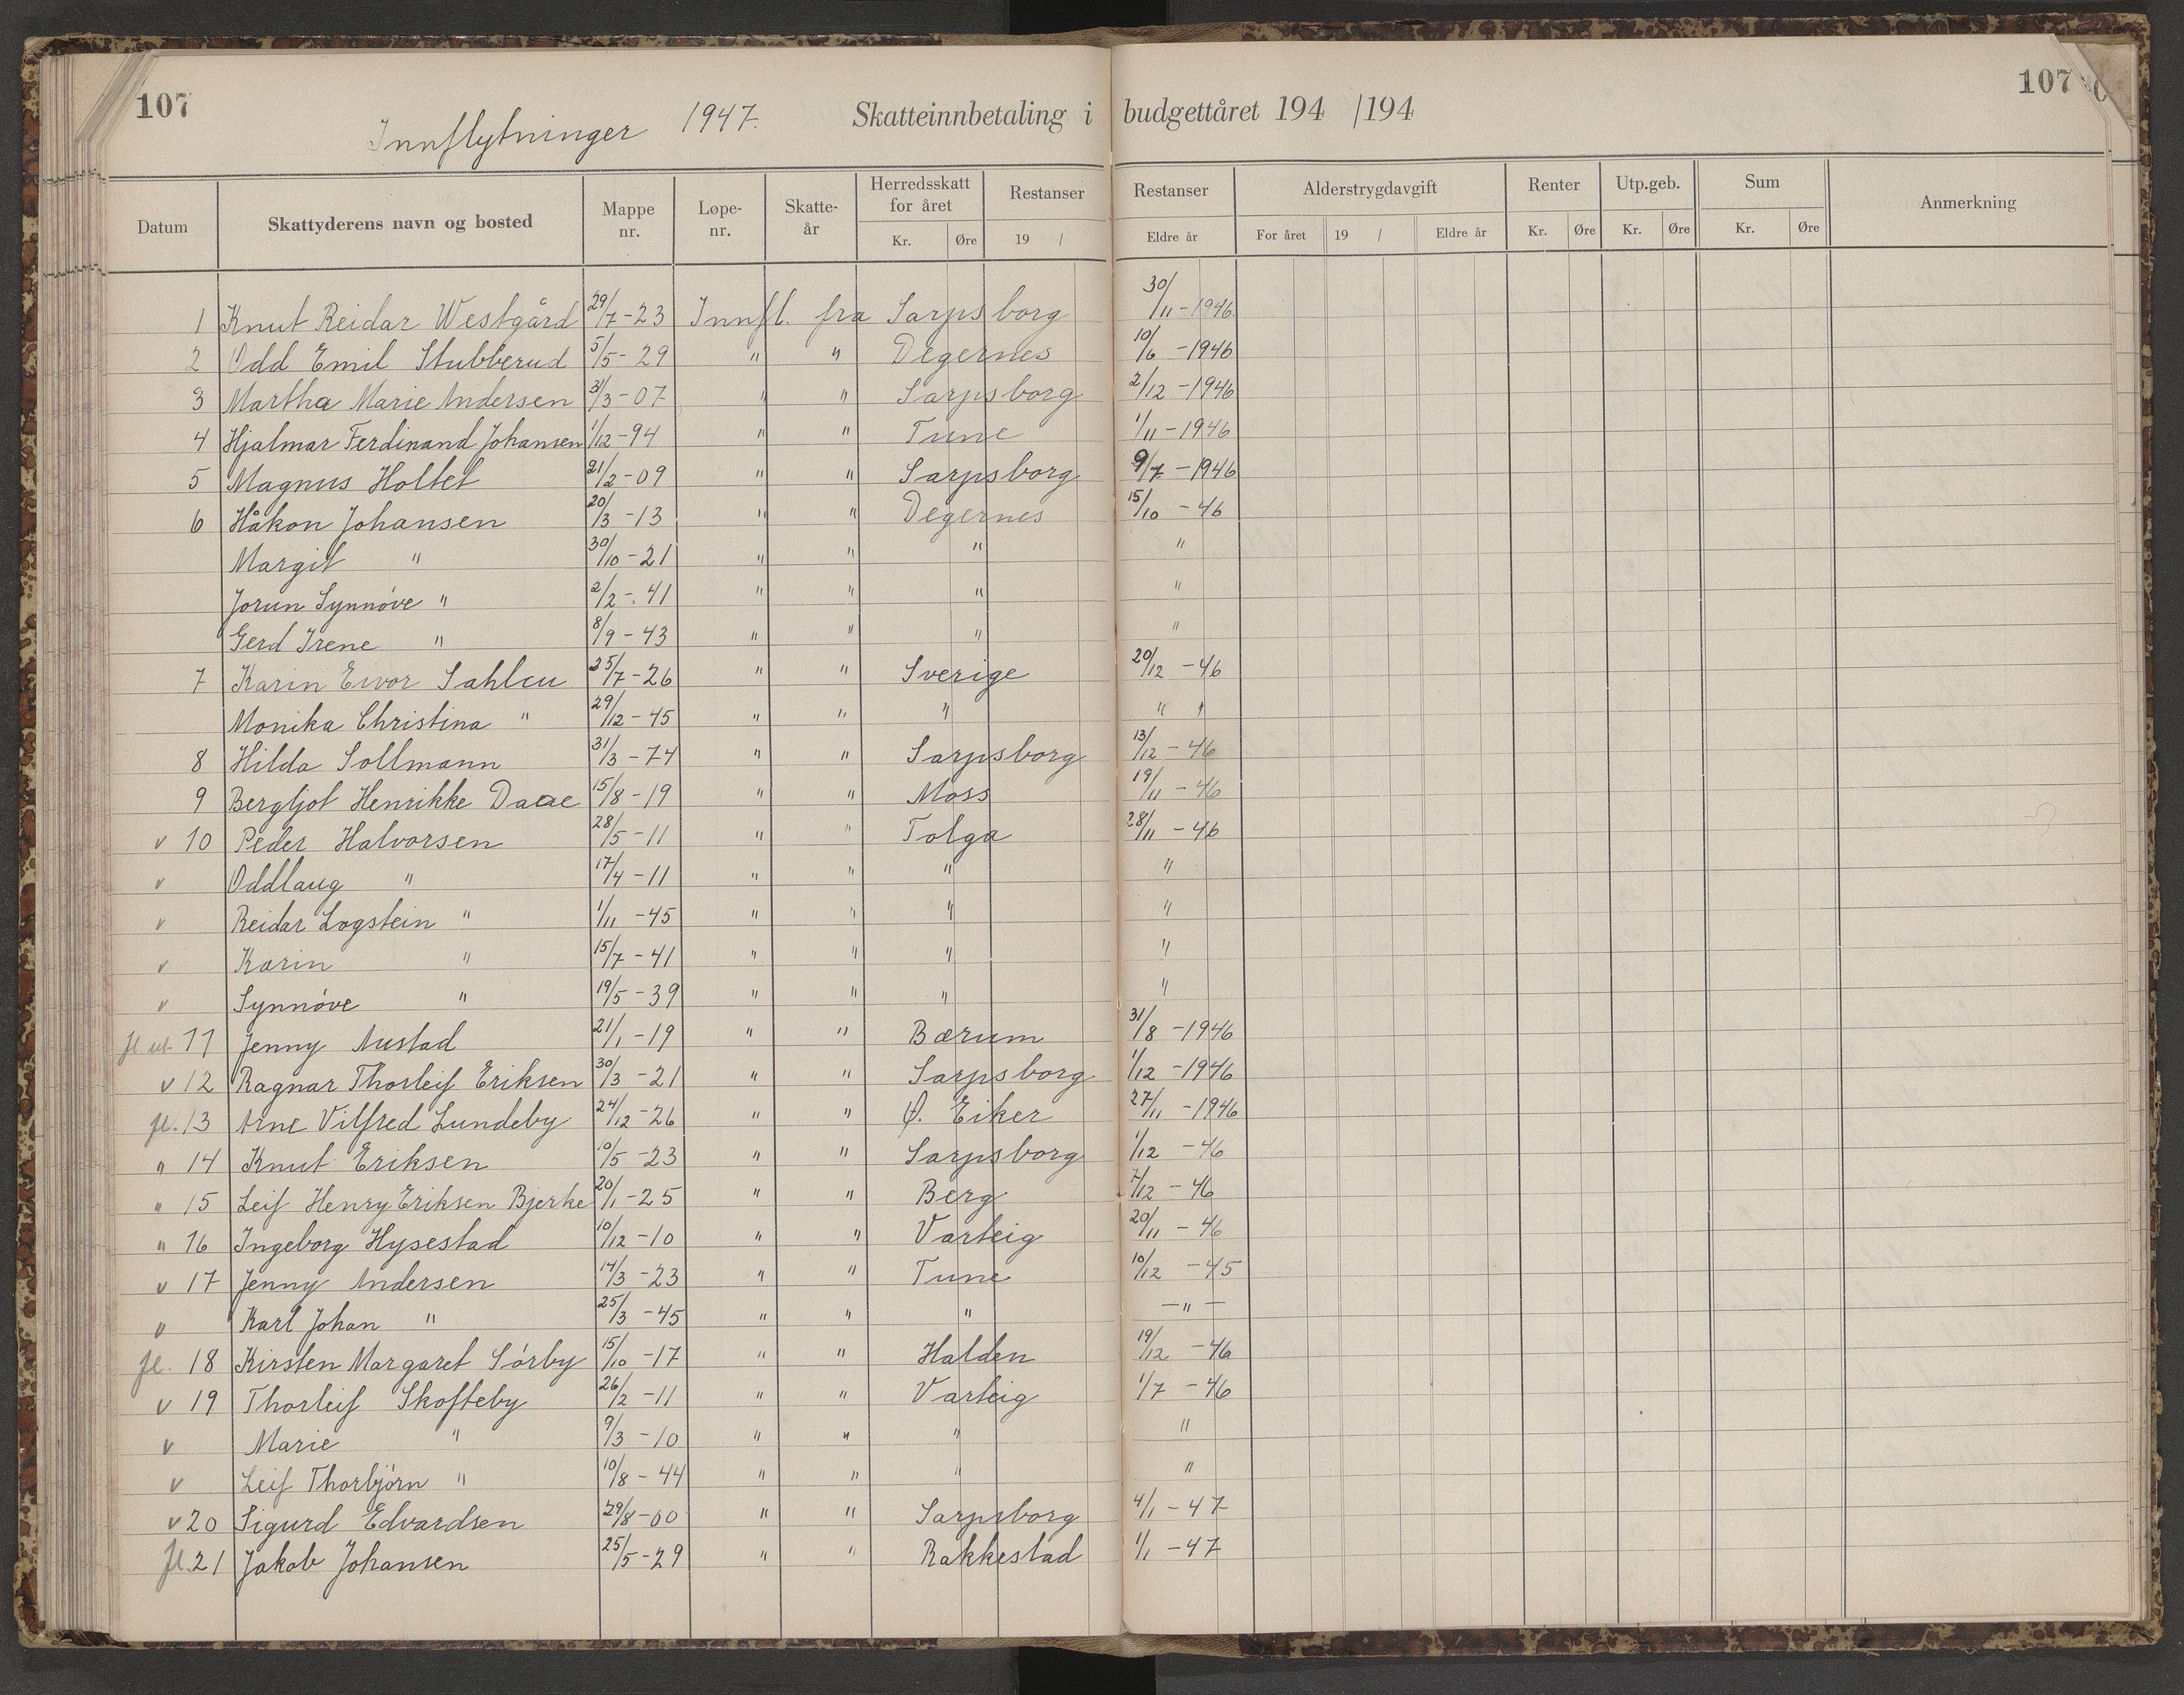 107
107
Innflytninger 1947.
Skatteinnbetaling i budgettåret 194 /194
Datum Skattyderens navn og bosted Mappe nr. Løpe-nr. Skatte-år Herredsskatt for året Kr. Øre Restanser 19 / Restanser Eldre år Alderstrygdavgift For året 19 / Eldre år Renter Kr. Øre Utp.geb. Kr. Øre Sum Kr. Øre Anmerkning
1 Knut Reidar Westgård 29/7-23 Innfl. fra Sarpsborg 30/11-1946.
2 Odd Emil Stubberud 5/5-29 " " Degernes 10/6-1946
3 Martha Marie Andersen 31/3-07 " " Sarpsborg 2/12-1946
4 Hjalmar Ferdinand Johansen 1/12-94 " " Tune 1/11-1946
5 Magnus Holtet 21/2-09 " " Sarpsborg 9/7-1946
6 Håkon Johansen 20/3-13 " " Degernes 15/10-46
Margit " 30/10-21 " " " "
Jorun Synnóve " 2/2-41 " " " "
Gerd Irene " 8/9-43 " " " "
7 Karin Eivor Sahleu 25/7-26 " " Sverige 20/12-46
Monika Christina " 29/12-45 " " " " "
8 Hilda Sollmann 31/3-74 " " Sarpsborg 13/12-46
9 Bergljot Henrikke Daae 15/8-19 " " Moss 19/11-46
v 10 Peder Halvorsen 28/5-11 " " Tolga 28/11-46
v Oddlaug " 17/4-11 " " " "
v Reidar Logstein " 1/11-45 " " " "
v Karin " 15/7-41 " " " "
v Synnóve " 19/5-39 " " " "
fl ut 11 Jenny Austad 21/1-19 " " Bærum 31/8-1946
v 12 Ragnar Thorleif Eriksen 30/3-21 " " Sarpsborg 1/12-1946
fl. 13 Arne Vilfred Lundeby 24/12-26 " " Ø. Eiker 27/11-1946
" 14 Knut Eriksen 10/5-23 " " Sarpsborg 1/12-46
" 15 Leif Henry Eriksen Bjerke 20/1-25 " " Berg 7/12-46
" 16 Ingeborg Hysestad 10/12-10 " " Varteig 20/11-46
v 17 Jenny Andersen 14/3-23 " " Tune 10/12-45
v Karl Johan " 25/3-45 " " " -"-
fl. 18 Kirsten Margaret Sórby 15/10-17 " " Halden 19/12-46
v 19 Thorleif Skofteby 26/2-11 " " Varteig 1/7-46
v Marie " 9/3-10 " " " "
v Leif Thorbjórn " 10/8-44 " " " "
v 20 Sigurd Edvardsen 29/8-00 " " Sarpsborg 4/1-47
fl. 21 Jakob Johansen 25/5-29 " " Rakkestad 1/1-47